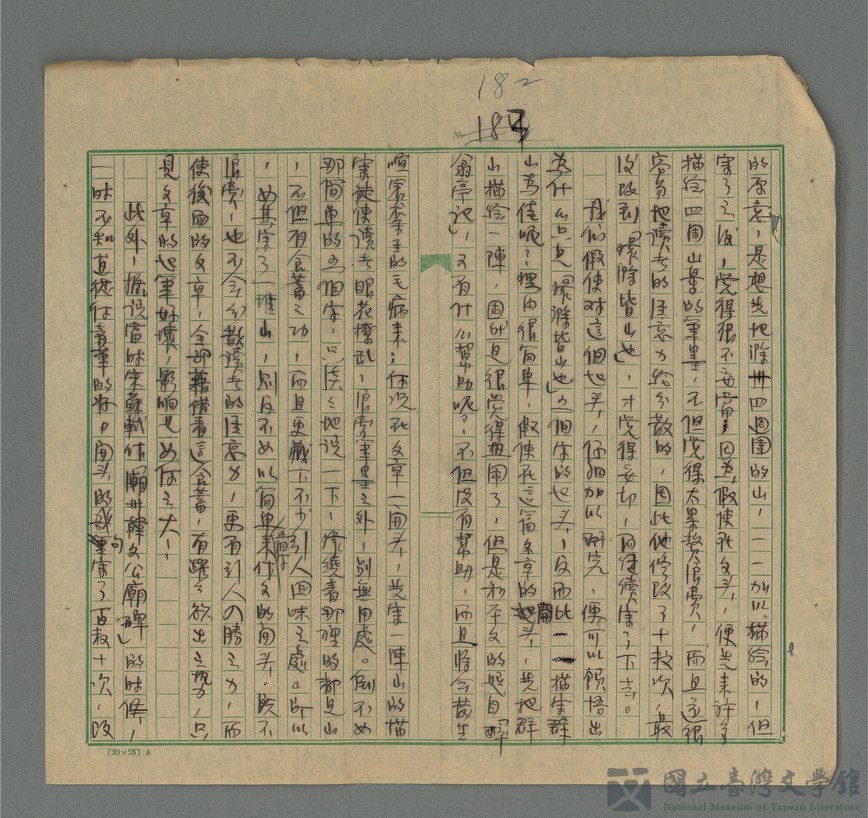 182
No. 18
的原意,是想先把滁州四週圍的山,一一加以描繪的,但
寫了之後,覺得很不妥當;因為,假使在文头,便先来許多
描繪四周山景的筆墨,不但覺得太累贅浪費,而且还很
容易地讀者的注意力給分散的,因此他修改了十数次,最
後改到「環滁皆山也」,才覺得妥切,再継續寫了下去。
我们假使对這個起头,仔細加以研究,便可以領悟出
為什么只是「環滁皆山也」五個字的起头,反而比一一描寫群
山為佳呢?理由很简單,假使在這篇文章的開头,先把群
山描繪一陣,固然是很覺得熱鬧了,但是和本文的題目「醉
翁亭記」,又有什么幫助呢?不但沒有幫助,而且將会發生
喧賓奪主的毛病来;你說在文章一開头,先寫一陣山的描
寫徒使讀者眼花撩乱,浪費筆墨之外,別無用處。倒不如
那简單的五個字,只淡淡地說一下,環繞着那裡的都是山
,不但有含蓄之功,而且更藏下不少引人回味之處。所以
,如其寫了一堆山,則反不如以简單来作文的開头,既不
浪費,也不会分散讀者的注意力,更有引人入勝之力,而
使後面的文章,全部藉借着這含蓄,有躍躍欲出之勢力,只
見文章的起筆好壞,影响是如何之大!
此外,據說當時宋蘇軾作「潮州韓文公廟碑」的时候,
一时不知道從何着筆的好,開头的幾句寫了百数十次,改
(20×25) A
國立臺灣文學館
National Museum of Taiwan Literature